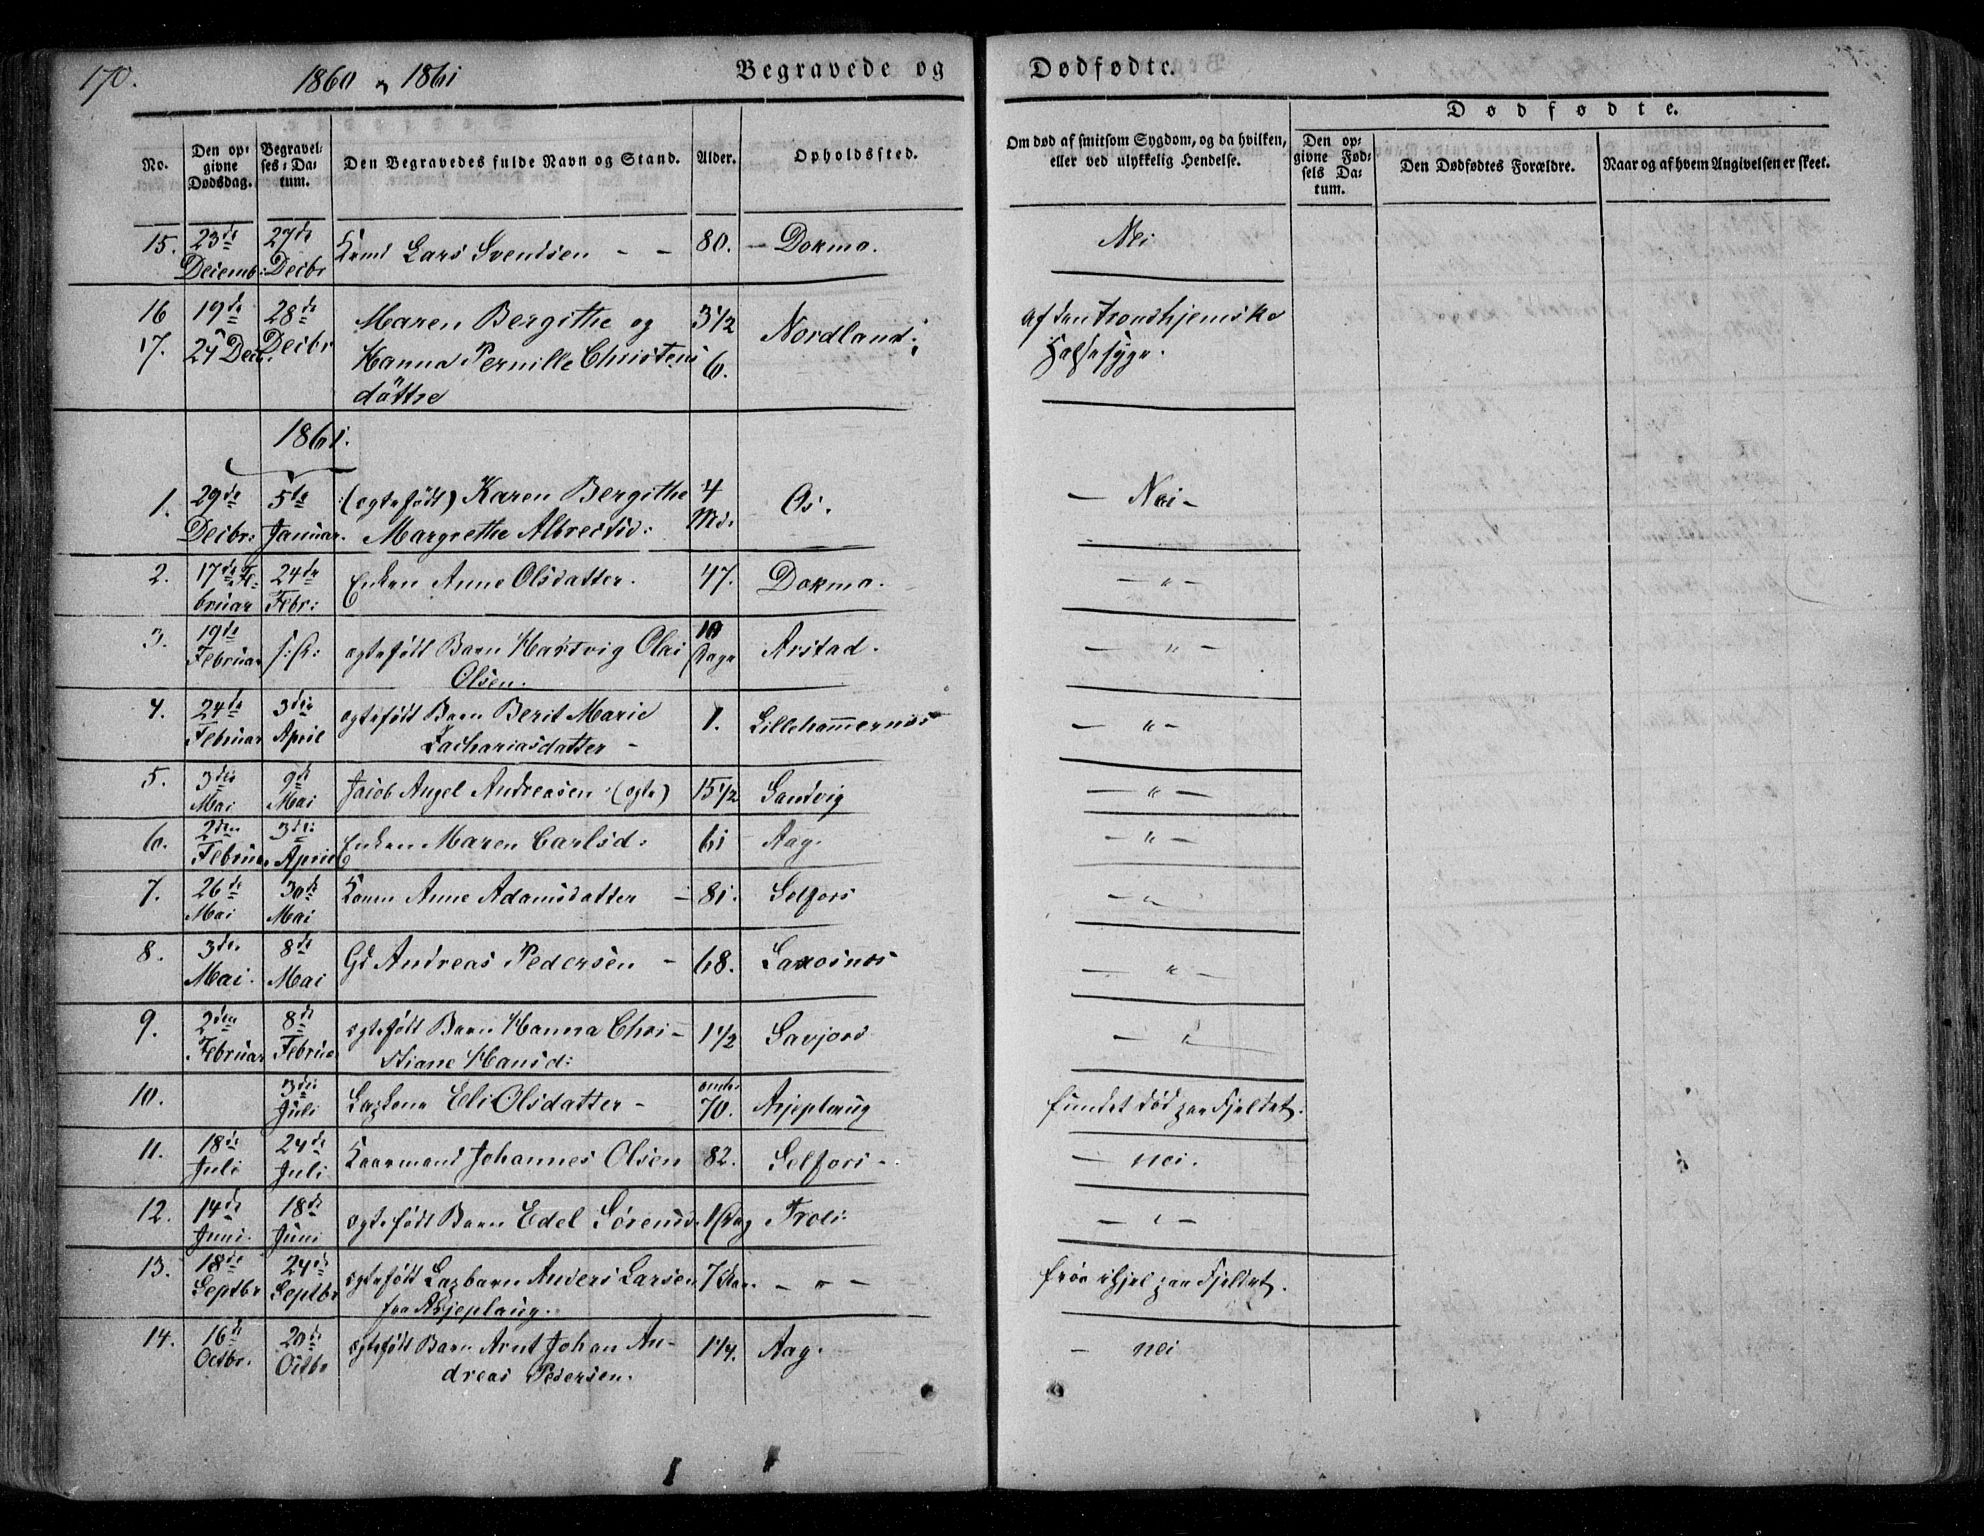 170.
1860 og 1861
Begravede og Dødfødte.
No.
Den opgivne Dødsdag.
Begravelses-Datum.
Den Begravedes fulde Navn og Stand.
Alder.
Opholdssted.
Om død af smitsom Sygdom, og da hvilken, eller ved ulykkelig Hendelse.
Dødfødte.
Den opgivne Fødsels Datum.
Den Dødfødtes Forældre.
Naar og af hvem Angivelsen er skeet.
15. 23de 27de Lars Svendsen - - 80. - Dokmo. Nei
Decemb: Decbr
16 19de 28de Maren Bergithe og 3 1/2 Nordland: af den trondhjemske
17. 24 Decbr. Decbr Hanna Pernille Christens 6. Halssyge.
døttre
1861.
1. 29de 5te (ægtefødt) Karen Bergithe 4 Os. - Nei -
Decbr: Januar. Margrethe Albrectsd: Md.
2. 17de Fe- 24de Enken Anne Olsdatter. 47. Dokmo. - " -
bruar Febr:
3. 19de ægtefødt Barn Hartvig Olai 10 Arstad. - " -
Februar Olsen. Dage
4. 24de 3die ægtefødt Barn Berit Marie 1. Lillehammernæs - " -
Februar April Zachariasdatter -
5. 3die 9de Jacob Angel Andreasen (ægte) 15 1/2 Sandvig - " -
Mai Mai
6. 2den 3die Enken Maren Carlsd: 61 Aag. - " -
Februar April
7. 26de 30de Konen Anne Adamsdatter - 81. Selfors - " -
Mai Mai
8. 3die 8de Gd Andreas Pedersen - 68. Laxosnæs - " -
Mai. Mai
9. 2den 8de ægtefødt Barn Hanna Chri- 1 1/2 Savjord - " -
Februar Februar stiane Hansd:
10. 3die Eli Olsdatter - omtr. 70. Arjeplaug fundet død paa Fjeldet.
Juli
11. 18de 24de Kaarmand Johannes Olsen 82. Selfors - - nei.
Juli Juli
12. 14de 18de ægtefødt Barn Edel Sörensd. 1 Dag Troli - " -
Juni. Juni
13. 18de 24de ægtefødt Lapbarn Anders Larsen 7 - " - frøs ihjel paa Fjeldet.
Septbr Septbr fra Arjeplaug.
14. 16de 20de ægtefødt Barn Arnt Johan An- 1 1/4. Aag. - nei
Octbr. Octbr dreas Pedersen.